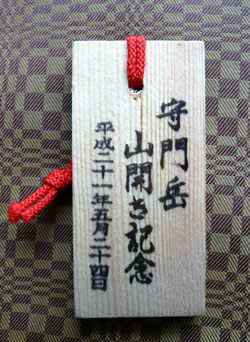 守門岳
山開き記念
平成二十一年五月二十四日